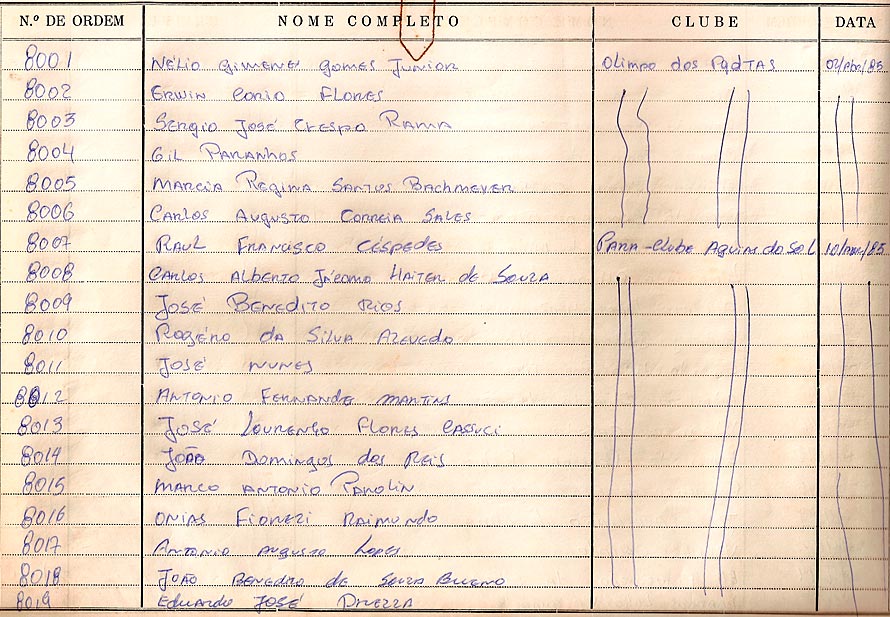 N.º DE ORDEM NOME COMPLETO CLUBE DATA
8001 Nélio Gimenes Gomes Junior Olimpo dos Pqdtas 02/Abr/85
8002 Erwin Corio Flores
8003 Sergio José Crespo Rama
8004 Gil Paranhos
8005 Marcia Regina Santos Bachmeyer
8006 Carlos Augusto Correia Sales
8007 Raul Francisco Céspedes Para-Clube Aguias do Sol 10/Abr/85
8008 Carlos Alberto Jácomo de Souza
8009 José Benedito Rios
8010 Rogério da Silva Azevedo
8011 José Nunes
8012 Antonio Fernande Martins
8013 José Lourenço Flores
8014 João Domingos dos Reis
8015 Marco Antonio Parolin
8016 Onias Raimundo
8017 Antonio Augusto Lopes
8018 João Benedito de Souza Bueno
8019 Eduardo José